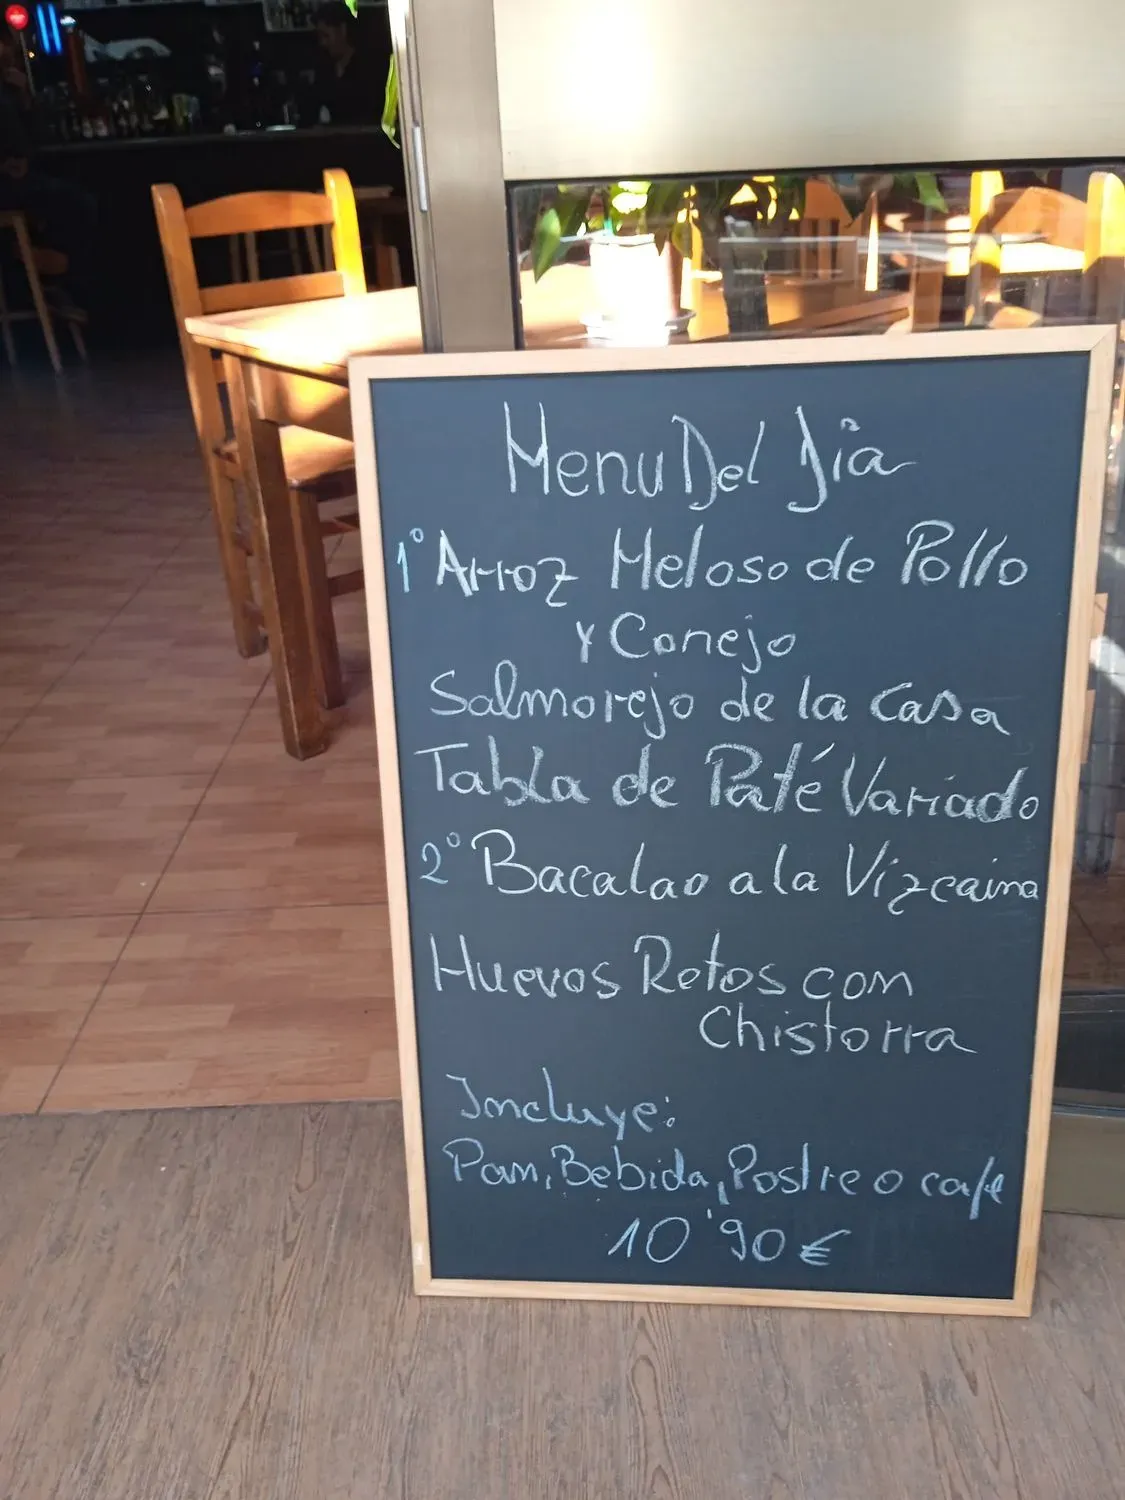 Menu Del Dia
1º Arroz Meloso de Pollo
y Conejo
Salmorejo de la Casa
Tabla de Paté Variado
2º Bacalao a la Vizcaina
Huevos Rotos con
Chistorra
Incluye:
Pan, Bebida, Postre o cafe
10'90 €